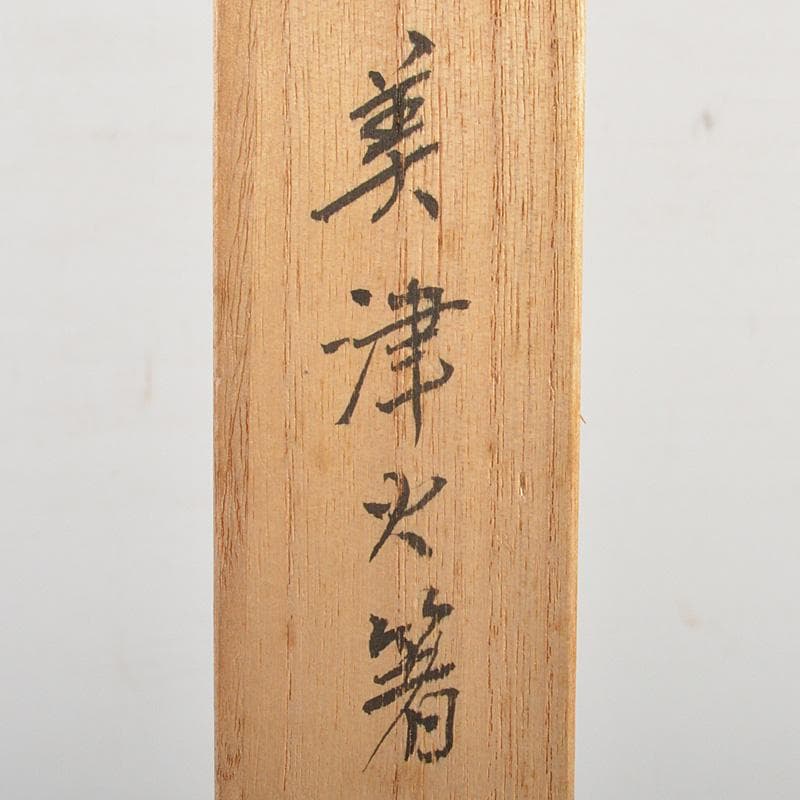 美津火箸